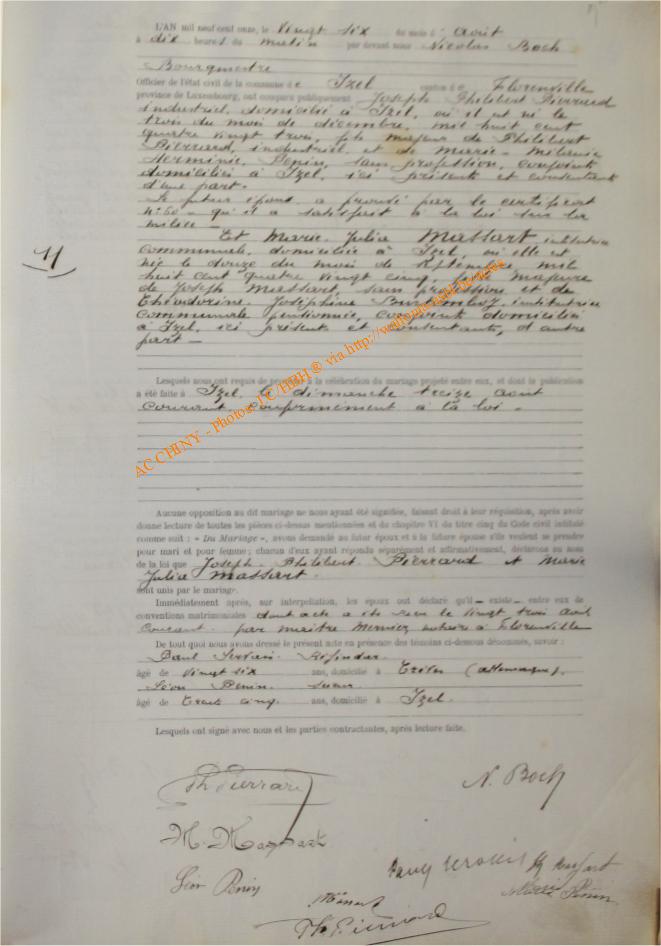 L'AN mil neuf cent onze, le vingt six du mois d' août
à dix heures du matin par devant nous Nicolas Bock
Bourgmestre
Officier de l'état civil de la commune d'e Izel canton d e Florenville
province de Luxembourg, ont comparu publiquement Joseph Philibert Pierrard
industriel, domicilié à Izel, où il est né le
trois du mois de décembre, mil huit cent
quatre vingt trois, fils majeur de Philibert
Pierrard, industriel et de Marie Mélanie
Herminie Penin, sans profession, conjoints
domiciliés à Izel, ici présents et consentants
d'une part.
Le futur époux a prouvé par le certificat
n° 50 qu'il a satisfait à la loi sur la
milice —
Et Marie Julia Massart institutrice
communale, domiciliée à Izel, où elle est
née le douze du mois de septembre mil
huit cent quatre vingt cinq, fille majeure
de Joseph Massart, sans profession et de
Théodorine Joséphine institutrice
communale pensionnée, conjoints domiciliés
à Izel, ici présents et consentants, d'autre
part —
11
Lesquels nous ont requis de procéder à la célébration du mariage projeté entre eux, et dont la publication
a été faite à Izel, le dimanche treize août
courant, conformément à la loi -
AC CHINY - Photos JC HBH ® via http://
Aucune opposition au dit mariage ne nous ayant été signifiée, faisant droit à leur réquisition, après avoir
donné lecture de toutes les pièces ci-dessus mentionnées et du chapitre VI du titre cinq du Code civil intitulé
comme suit : « Du Mariage », avons demandé au futur époux et à la future épouse s'ils veulent se prendre
pour mari et pour femme ; chacun d'eux ayant répondu séparément et affirmativement, déclarons au nom
de la loi que Joseph Philibert Pierrard et Marie
Julia Massart.
sont unis par le mariage.
Immédiatement après, sur interpellation, les époux ont déclaré qu'il — existe — entre eux de
conventions matrimoniales dont acte a été reçu le vingt trois août
courant par maître notaire à Florenville
De tout quoi nous avons dressé le présent acte en présence des témoins ci-dessous dénommés, savoir :
Paul Servais
âgé de vingt six ans, domicilié à Trèves (Allemagne).
Léon Penin
âgé de trente cinq ans, domicilié à Izel.
Lesquels ont signé avec nous et les parties contractantes, après lecture faite.
Ph Pierrard N. Bock
M. Massart
Paul Servais Massart
Léon Penin Penin
Ph. Pierrard